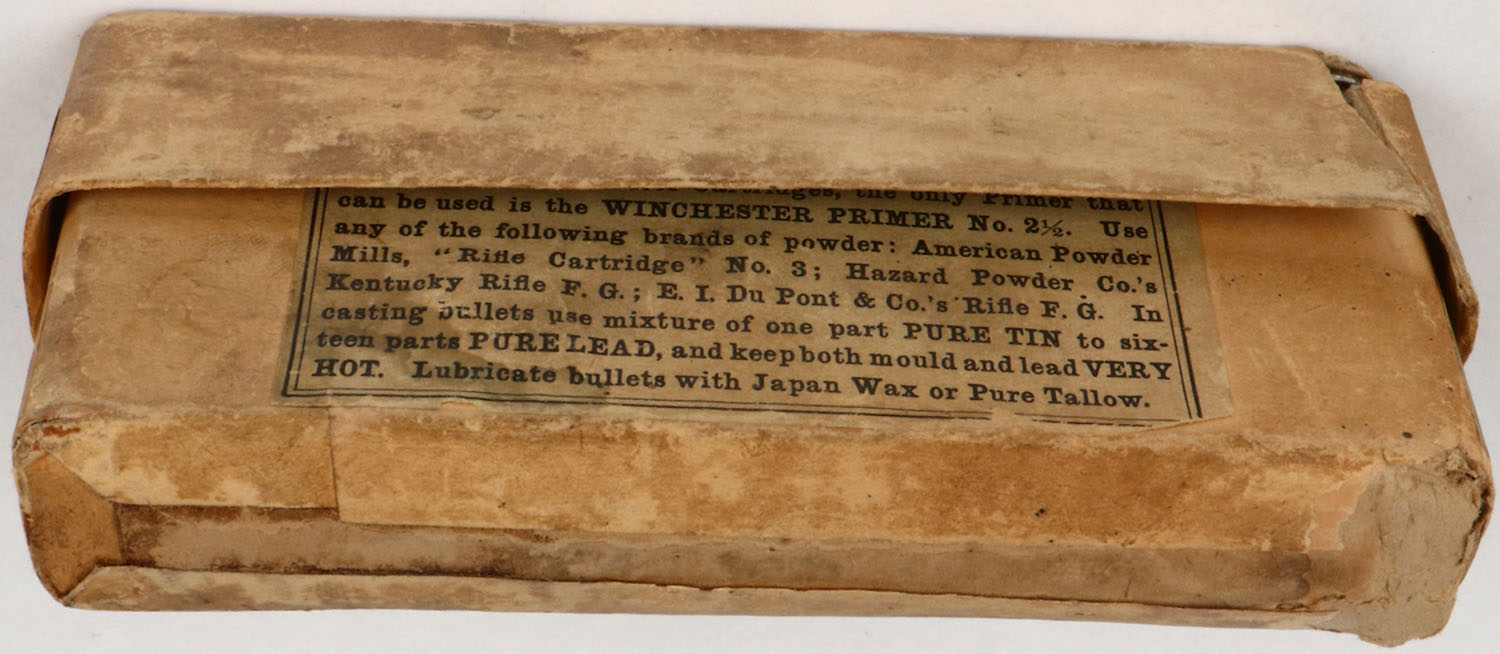 Cartridges, the only Primer that
can be used is the WINCHESTER PRIMER No. 2½. Use
any of the following brands of powder: American Powder
Mills, "Rifle Cartridge" No. 3; Hazard Powder Co.'s
Kentucky Rifle F. G.; E. I. Du Pont & Co.'s Rifle F. G. In
casting bullets use mixture of one part PURE TIN to six-
teen parts PURE LEAD, and keep both mould and lead VERY
HOT. Lubricate bullets with Japan Wax or Pure Tallow.